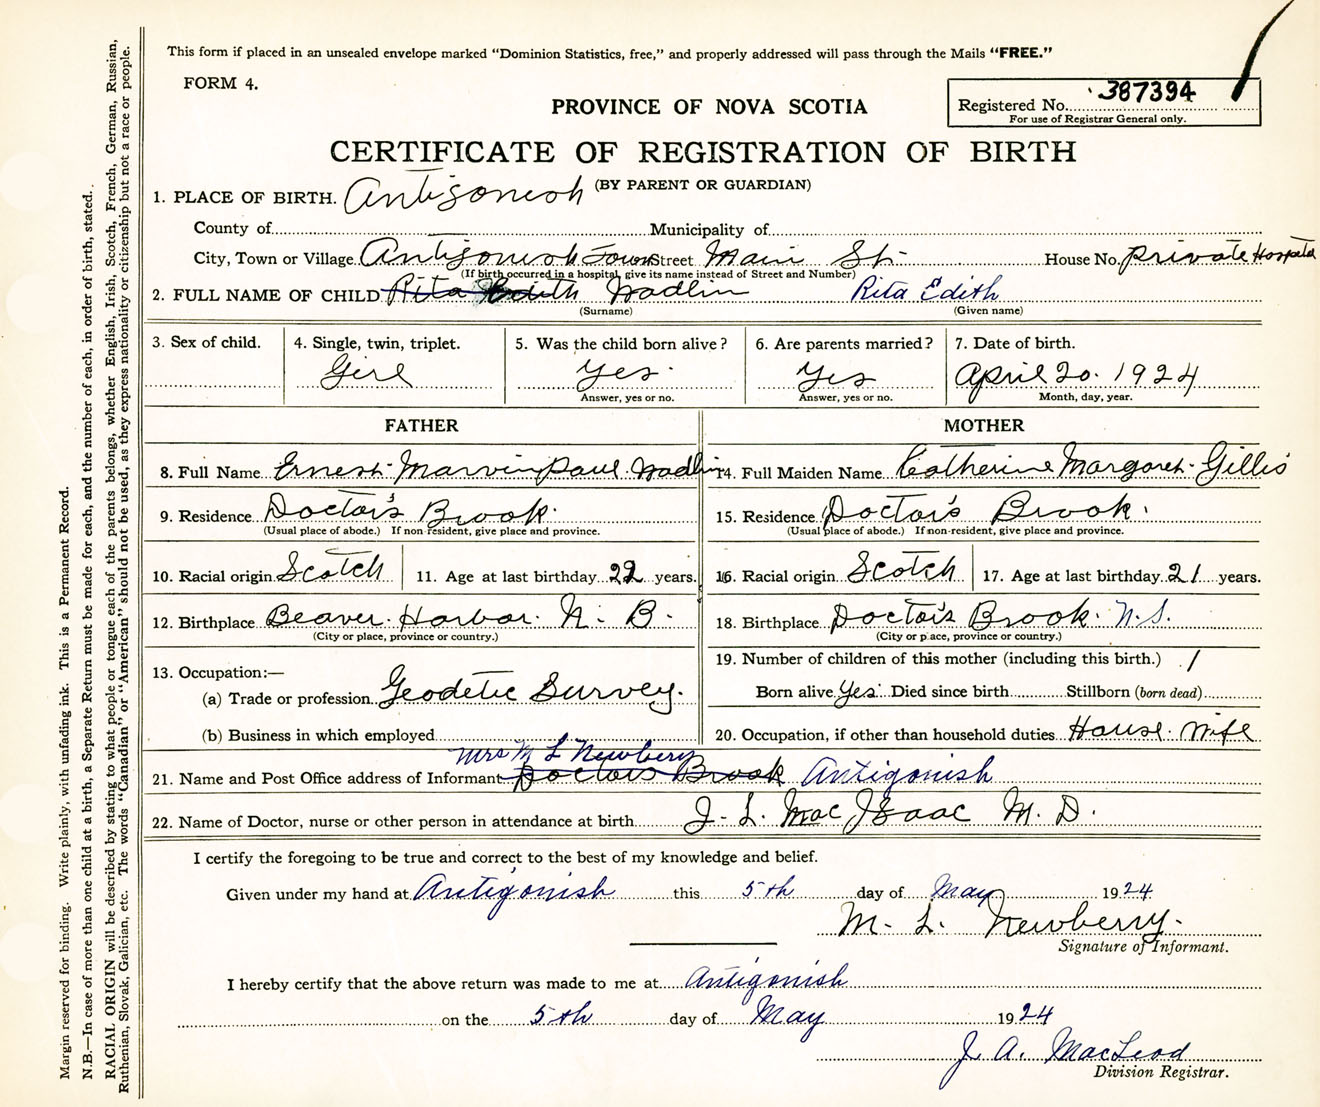 This form if placed in an unsealed envelope marked "Dominion Statistics, free," and properly addressed will pass through the Mails "FREE."
FORM 4.
PROVINCE OF NOVA SCOTIA
Registered No. 387394
For use of Registrar General only.
CERTIFICATE OF REGISTRATION OF BIRTH
(BY PARENT OR GUARDIAN)
1. PLACE OF BIRTH. Antigonish
County of Municipality of
City, Town or Village Antigonish Town Street Main St. House No. Private Hospital
(If birth occurred in a hospital, give its name instead of Street and Number)
2. FULL NAME OF CHILD Rita Edith Wadlin Rita Edith
(Surname) (Given name)
3. Sex of child. 4. Single, twin, triplet. 5. Was the child born alive? 6. Are parents married? 7. Date of birth.
Girl Yes. Yes April 20. 1924
Answer, yes or no. Answer, yes or no. Month, day, year.
FATHER MOTHER
8. Full Name Ernest Marvin Paul Wadlin 14. Full Maiden Name Catherine Margaret Gillis
9. Residence Doctor's Brook. 15. Residence Doctor's Brook.
(Usual place of abode.) If non-resident, give place and province. (Usual place of abode.) If non-resident, give place and province.
10. Racial origin Scotch 11. Age at last birthday 22 years. 16. Racial origin Scotch 17. Age at last birthday 21 years.
12. Birthplace Beaver Harbor. N. B. 18. Birthplace Doctor's Brook. N.S.
(City or place, province or country.) (City or place, province or country.)
13. Occupation:— 19. Number of children of this mother (including this birth.) 1
(a) Trade or profession Geodetic Survey. Born alive Yes. Died since birth Stillborn (born dead)
(b) Business in which employed 20. Occupation, if other than household duties House Wife
Mrs M L Newbery
21. Name and Post Office address of Informant Doctors Brook Antigonish
22. Name of Doctor, nurse or other person in attendance at birth J. L. MacIsaac M. D.
I certify the foregoing to be true and correct to the best of my knowledge and belief.
Given under my hand at Antigonish this 5th day of May 1924
M. L. Newberry.
Signature of Informant.
I hereby certify that the above return was made to me at Antigonish
on the 5th day of May 1924
J. A. MacLeod
Division Registrar.
Margin reserved for binding. Write plainly, with unfading ink. This is a Permanent Record.
N.B.—In case of more than one child at a birth, a Separate Return must be made for each, and the number of each, in order of birth, stated.
RACIAL ORIGIN will be described by stating to what people or tongue each of the parents belongs, whether English, Irish, Scotch, French, German, Russian,
Ruthenian, Slovak, Galician, etc. The words "Canadian" or "American" should not be used, as they express nationality or citizenship but not a race or people.